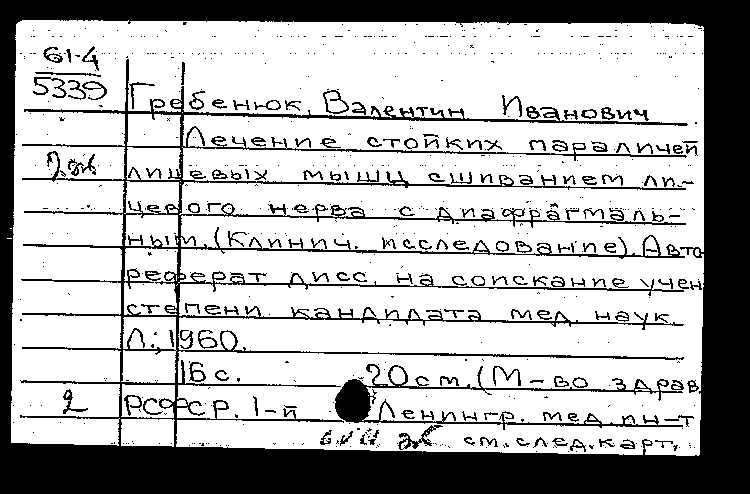 61-4
5339
Гребенюк, Валентин Иванович
Лечение стойких параличей
лицевых мышц сшиванием ли-
цевого нерва с диафрагмаль-
ным. (Клинич. исследование). Авто
реферат дисс. на соискание учен
степени кандидата мед. наук.
Л., 1960.
16 с. 20 см. (М-во здрав.
2 РСФСР. 1-й Ленингр. мед. ин-т
см. след. карт.